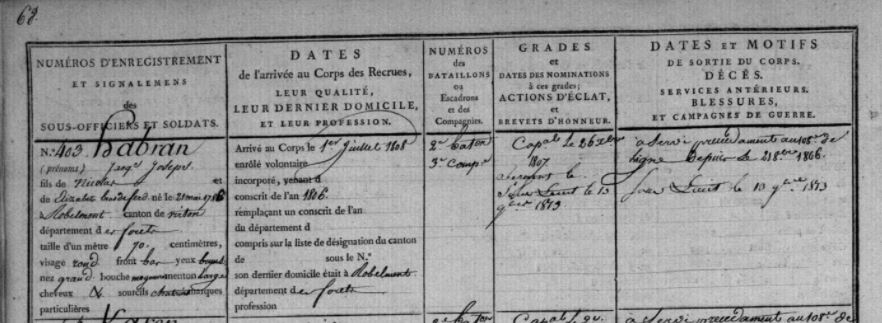 68.
NUMÉROS D'ENREGISTREMENT
ET SIGNALEMENS
des
SOUS-OFFICIERS ET SOLDATS.
DATES
de l'arrivée au Corps des Recrues,
LEUR QUALITÉ,
LEUR DERNIER DOMICILE,
ET LEUR PROFESSION.
NUMÉROS
des
BATAILLONS
ou
Escadrons
et des
Compagnies.
GRADES
et
DATES DES NOMINATIONS
à ces grades;
ACTIONS D'ÉCLAT,
et
BREVETS D'HONNEUR.
DATES ET MOTIFS
DE SORTIE DU CORPS.
DÉCÈS.
SERVICES ANTÉRIEURS.
BLESSURES,
ET CAMPAGNES DE GUERRE.
N.º 403. habran
(prénoms) Jacqs Joseph
fils de Nicolas et
de né le 21 mai 1786
à Robelmont canton de virton
département des forets
taille d'un mètre 70. centimètres,
visage rond front bas yeux bruns
nez grand bouche moyenne menton large
cheveux & sourcils marques
particulières
Arrivé au Corps le 1er Juillet 1808
enrôlé volontaire
incorporé, venant d
conscrit de l'an 1806.
remplaçant un conscrit de l'an
du département d
compris sur la liste de désignation du canton
de sous le N.º
son dernier domicile était à Robelmont
département des forets
profession
2e baton
3e Compe
Capal le 26
1807
Sergent le
Sous Lieut le 13
1813
a servi precedament au 108e de
ligne depuis le 21 1806.
Sous Lieut le 13 1813
habran
2e baton
Capal le 2e
a servi precedament au 108e de